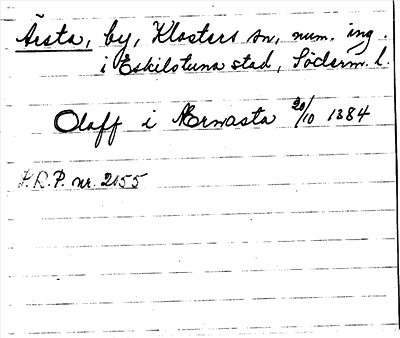 Ärsta, by, Klosters sn, num. ing.
i Eskilstuna stad, Söderm. l.
Olaff i Ærnasta 20/10 1384
S.R.P. nr. 2155